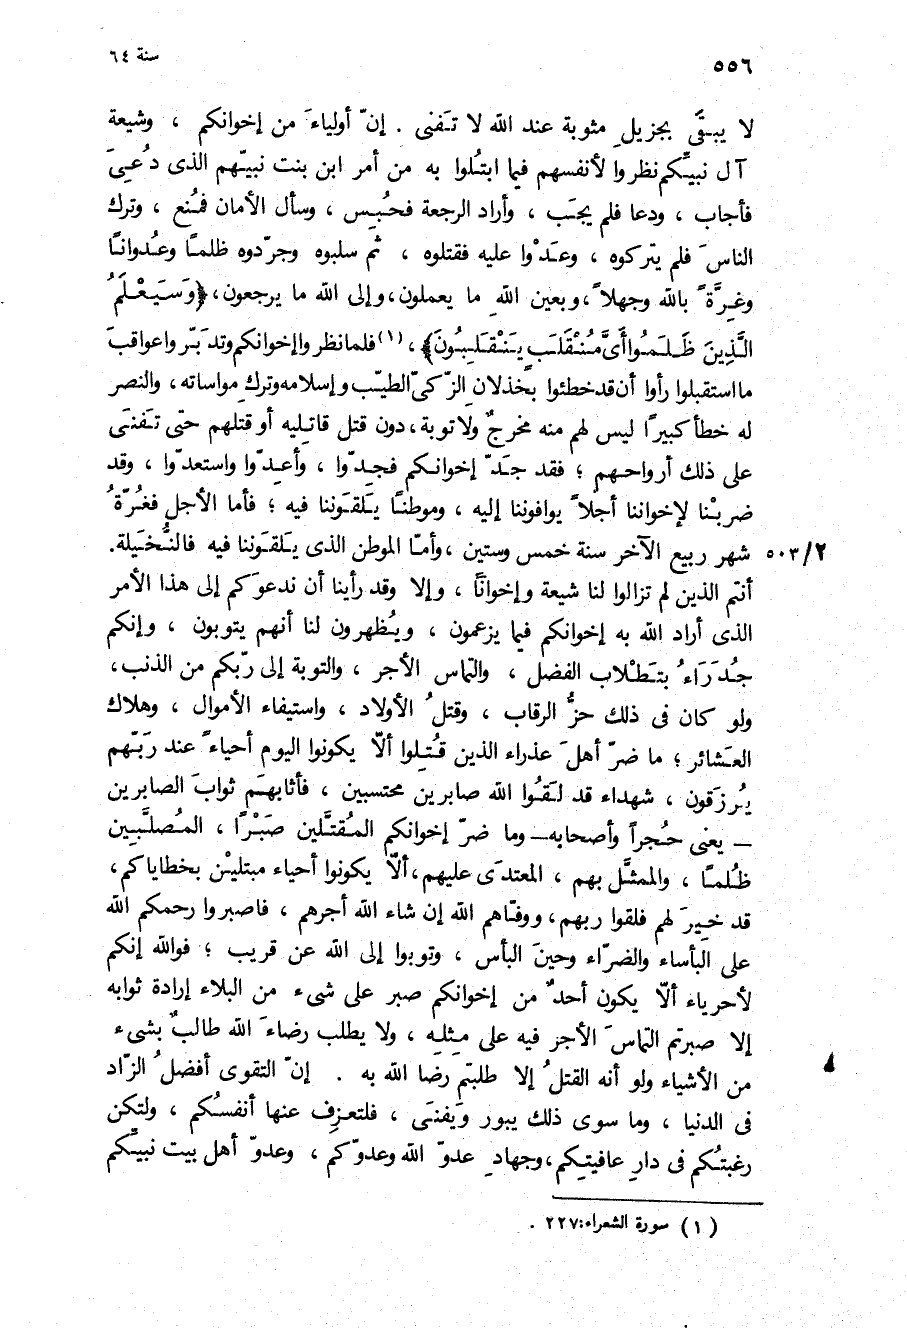 ٥٥٦ سنة ٦٤
لا يبقَّى بجزيلِ مثوبة عند الله لا تَفنى . إنّ أولياءَ من إخوانكم ، وشيعة
آل نبيِّكم نظروا لأنفسهم فيما ابتُلوا به من أمر ابن بنت نبيّهم الذى دُعِىَ
فأجاب ، ودعا فلم يجَب ، وأراد الرجعة فحُبِس ، وسأل الأمان فمُنع ، وترك
الناسَ فلم يتركوه ، وعَدَوْا عليه فقتلوه ، ثم سلبوه وجرّدوه ظلمًا وعُدوانًا
وغِرَّةً بالله وجهلاً، وبعين اللهِ ما يعملون، وإلى الله ما يرجعون، ﴿وَسَيَعْلَمُ
الَّذِينَ ظَلَمُوا أَىَّ مُنْقَلَبٍ يَنْقَلِبُونَ﴾، (١) فلما نظروا إخوانكم وتدَبَّروا عواقبَ
ما استقبلوا رأوا أن قد خطئوا بخذلان الزّكىّ الطيّب وإسلامه وترك مواساته، والنصر
له خطأ كبيرًا ليس لهم منه مخرجٌ ولا توبة، دون قتل قاتِليه أو قتلهم حتّى تَفنَى
على ذلك أرواحهم ؛ فقد جَدّ إخوانكم فجِدّوا ، وأعِدّوا واستعدّوا ، وقد
ضربْنا لإخواننا أجلاً يوافوننا إليه ، وموطنًا يَلقَوننا فيه ؛ فأما الأجل فغُرّةُ
شهر ربيع الآخر سنة خمس وستين ، وأمّا الموطن الذى يَلقَوننا فيه فالنُّخَيلة. ٥٠٣/٢
أنتم الذين لم تزالوا لنا شيعة وإخوانًا ، وإلا وقد رأينا أن ندعوَكم إلى هذا الأمر
الذى أراد الله به إخوانكم فيما يزعمون ، ويُظهرون لنا أنهم يتوبون ، وإنكم
جُدَرَاءُ بتَطْلاب الفضل ، والتماس الأجر ، والتوبة إلى ربّكم من الذنب،
ولو كان فى ذلك حزُّ الرقاب ، وقتلُ الأولاد ، واستيفاء الأموال ، وهلاك
العَشائر ؛ ما ضرّ أهلَ عذراء الذين قُتِلوا ألاّ يكونوا اليوم أحياءً عند ربّهم
يُرزَقون ، شهداء قد لَقُوا الله صابرين محتسبين ، فأثابهَم ثوابَ الصابرين
— يعنى حُجراً وأصحابه— وما ضرّ إخوانكم المُقتَّلين صَبْرًا ، المُصلَّبين
ظُلمًا ، والممثَّل بهم ، المعتدَى عليهم، ألاّ يكونوا أحياء مبتليْن بخطاياكم،
قد خِيرَ لهم فلقوا ربهم، ووفّاهم الله إن شاء الله أجرهم ، فاصبروا رحمكم الله
على البأساء والضرّاء وحينَ البأس ، وتوبوا إلى الله عن قريب ؛ فوالله إنكم
لأحرياء ألاّ يكون أحدٌ من إخوانكم صبر على شىء من البلاء إرادة ثوابه
إلا صبرتم التماسَ الأجر فيه على مِثلِه ، ولا يطلب رضاءَ الله طالبٌ بشىء
من الأشياء ولو أنه القتلُ إلا طلبتم رضا الله به . إنّ التقوى أفضلُ الزّاد
فى الدنيا ، وما سوى ذلك يبور ويَفنَى ، فلتعزِف عنها أنفسُكم ، ولتكن
رغبتُكم فى دارِ عافيتِكم، وجهادِ عدوّ الله وعدوّكم ، وعدوّ أهل بيت نبيِّكم
(١) سورة الشعراء:٢٢٧ .